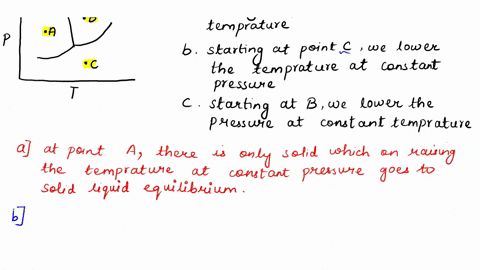 temprature
P
A
B
C
T
b. starting at point C, we lower
the temprature at constant
pressure
C. starting at B, we lower the
pressure at constant temprature
a] at point A, there is only solid which on raising
the temprature at constant pressure goes to
solid liquid equilibrium.
b]